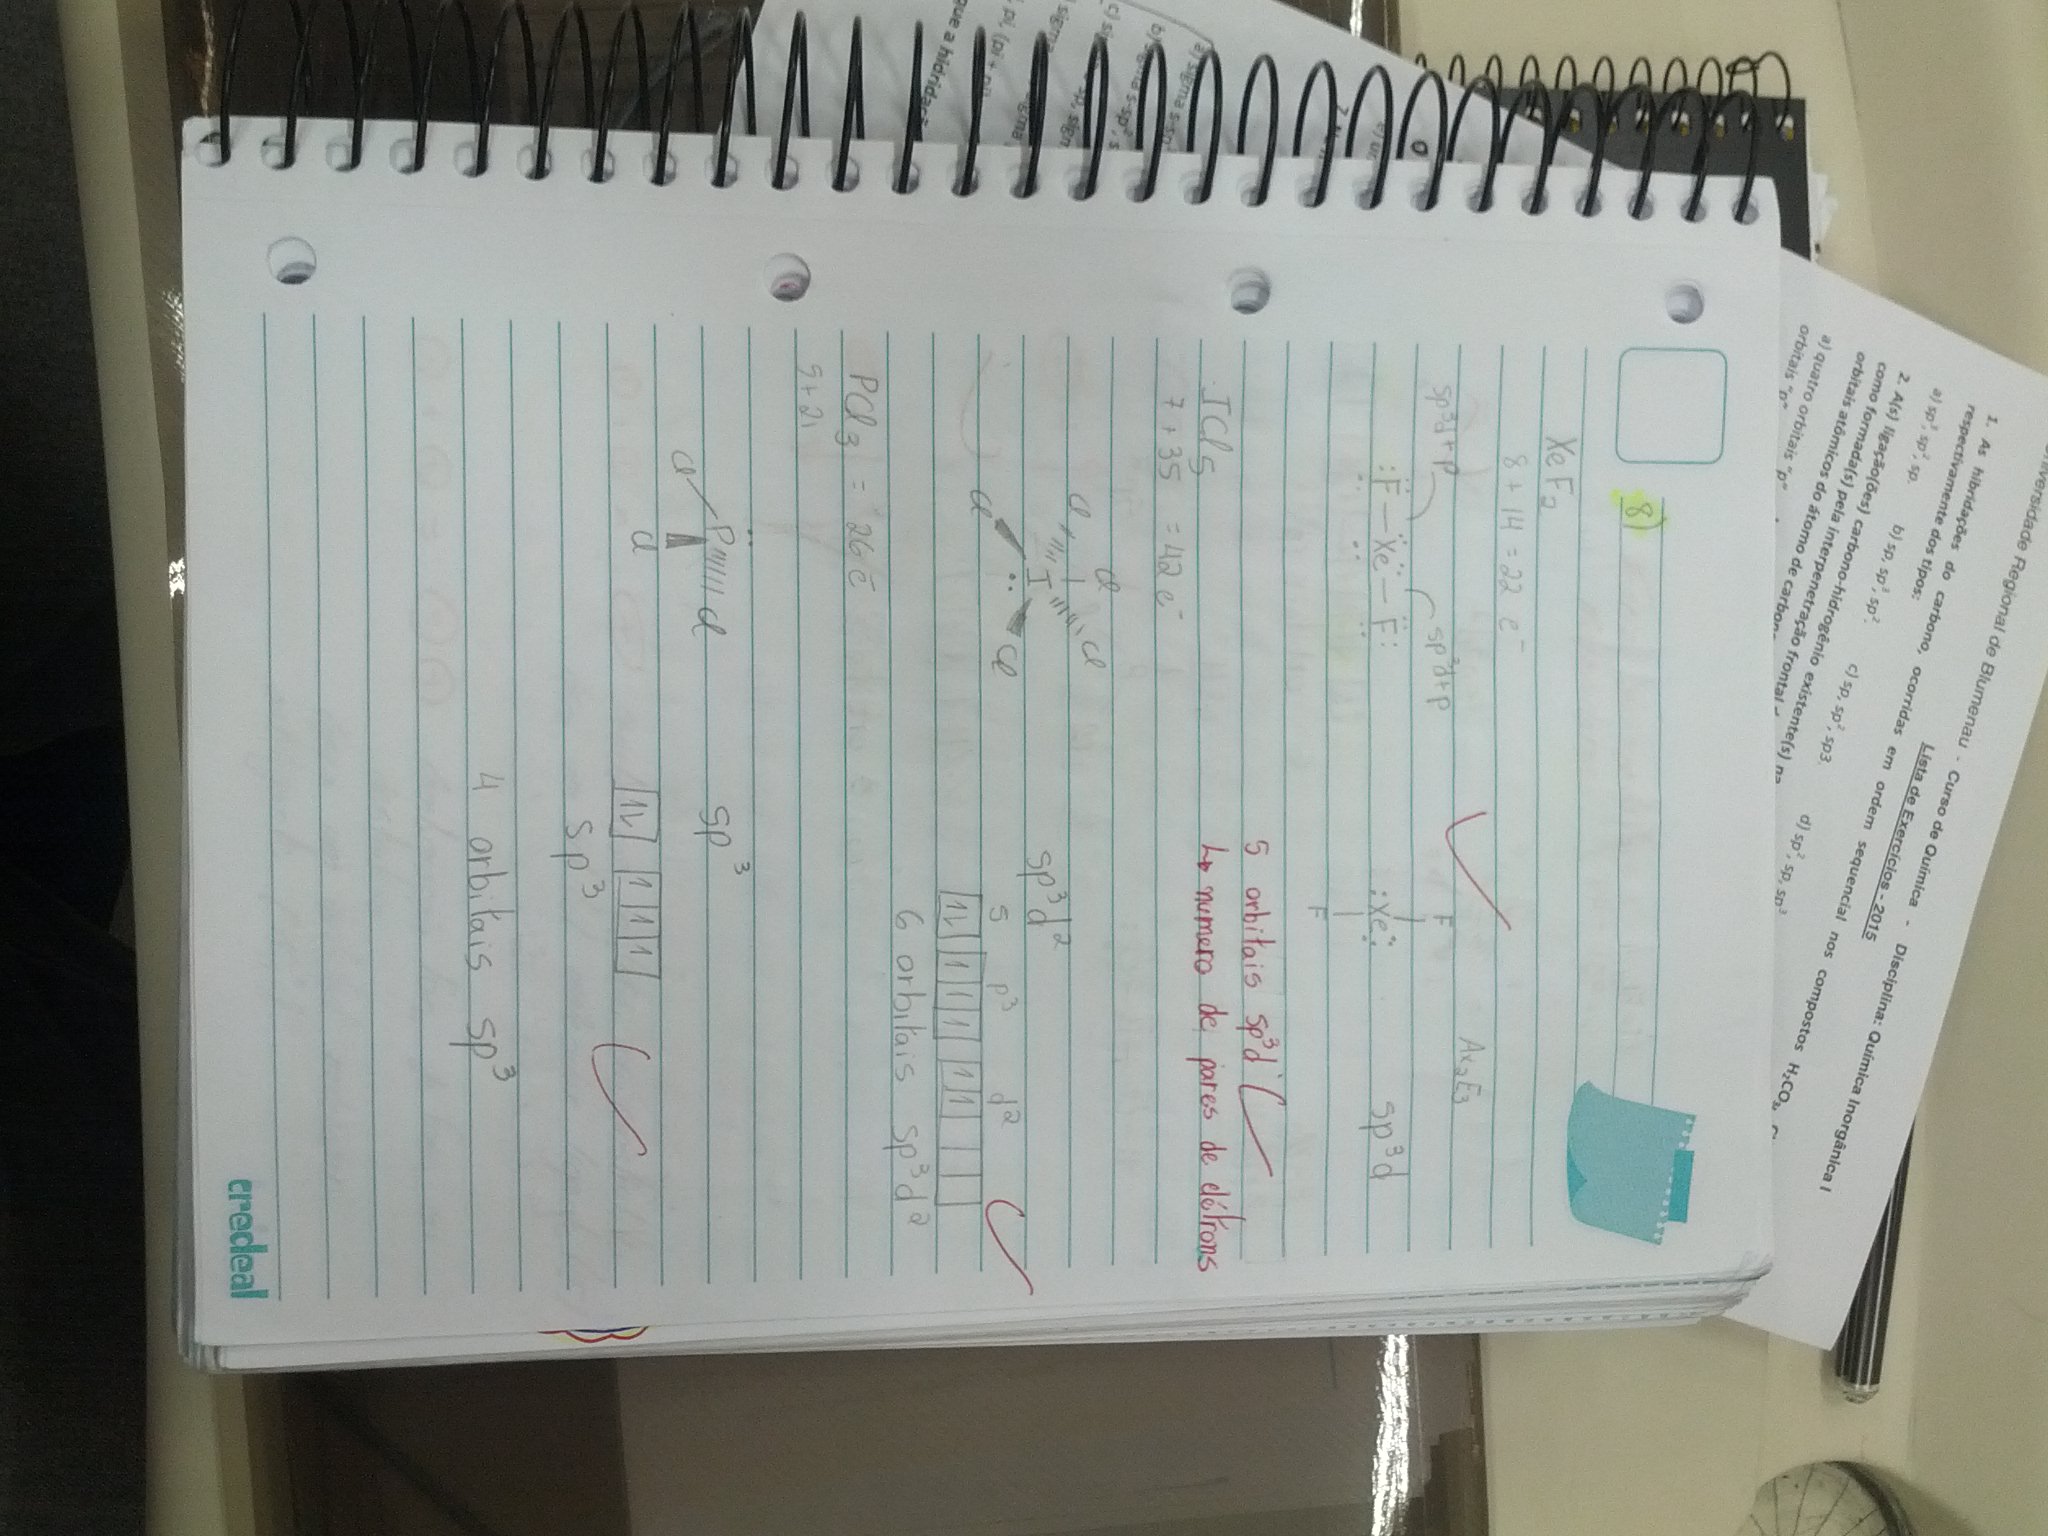 Universidade Regional de Blumenau - Curso de Química - Disciplina: Química Inorgânica I
Lista de Exercícios - 2015
1. As hibridações do carbono, ocorridas em ordem sequencial nos compostos H₂CO₃,
respectivamente dos tipos:
a) sp³, sp², sp. b) sp, sp³, sp². c) sp, sp², sp3. d) sp², sp, sp³
2. A(s) ligação(ões) carbono-hidrogênio existente(s) na
como formada(s) pela interpenetração frontal
orbitais atômicos do átomo de
a) quatro orbitais "p"
orbitais "p"
8)
XeF₂
8 + 14 = 22 e⁻
Ax₂E₃
sp³d+p sp³d+p
F
:F̈ – Xe – F̈:
:Xe:
F
sp³d
5 orbitais sp³d
↳ numero de pares de elétrons
ICl₅
7 + 35 = 42 e⁻
Cl
Cl Cl
I
Cl Cl
sp³d²
s p³ d²
1↓ 1 1 1 1 1
6 orbitais sp³d²
PCl₃ = 26 e⁻
5+21
P Cl
Cl
Cl
sp³
1↓ 1 1 1
sp³
4 orbitais sp³
a) sigma s-sp
b) sigma s-sp², s
credeal